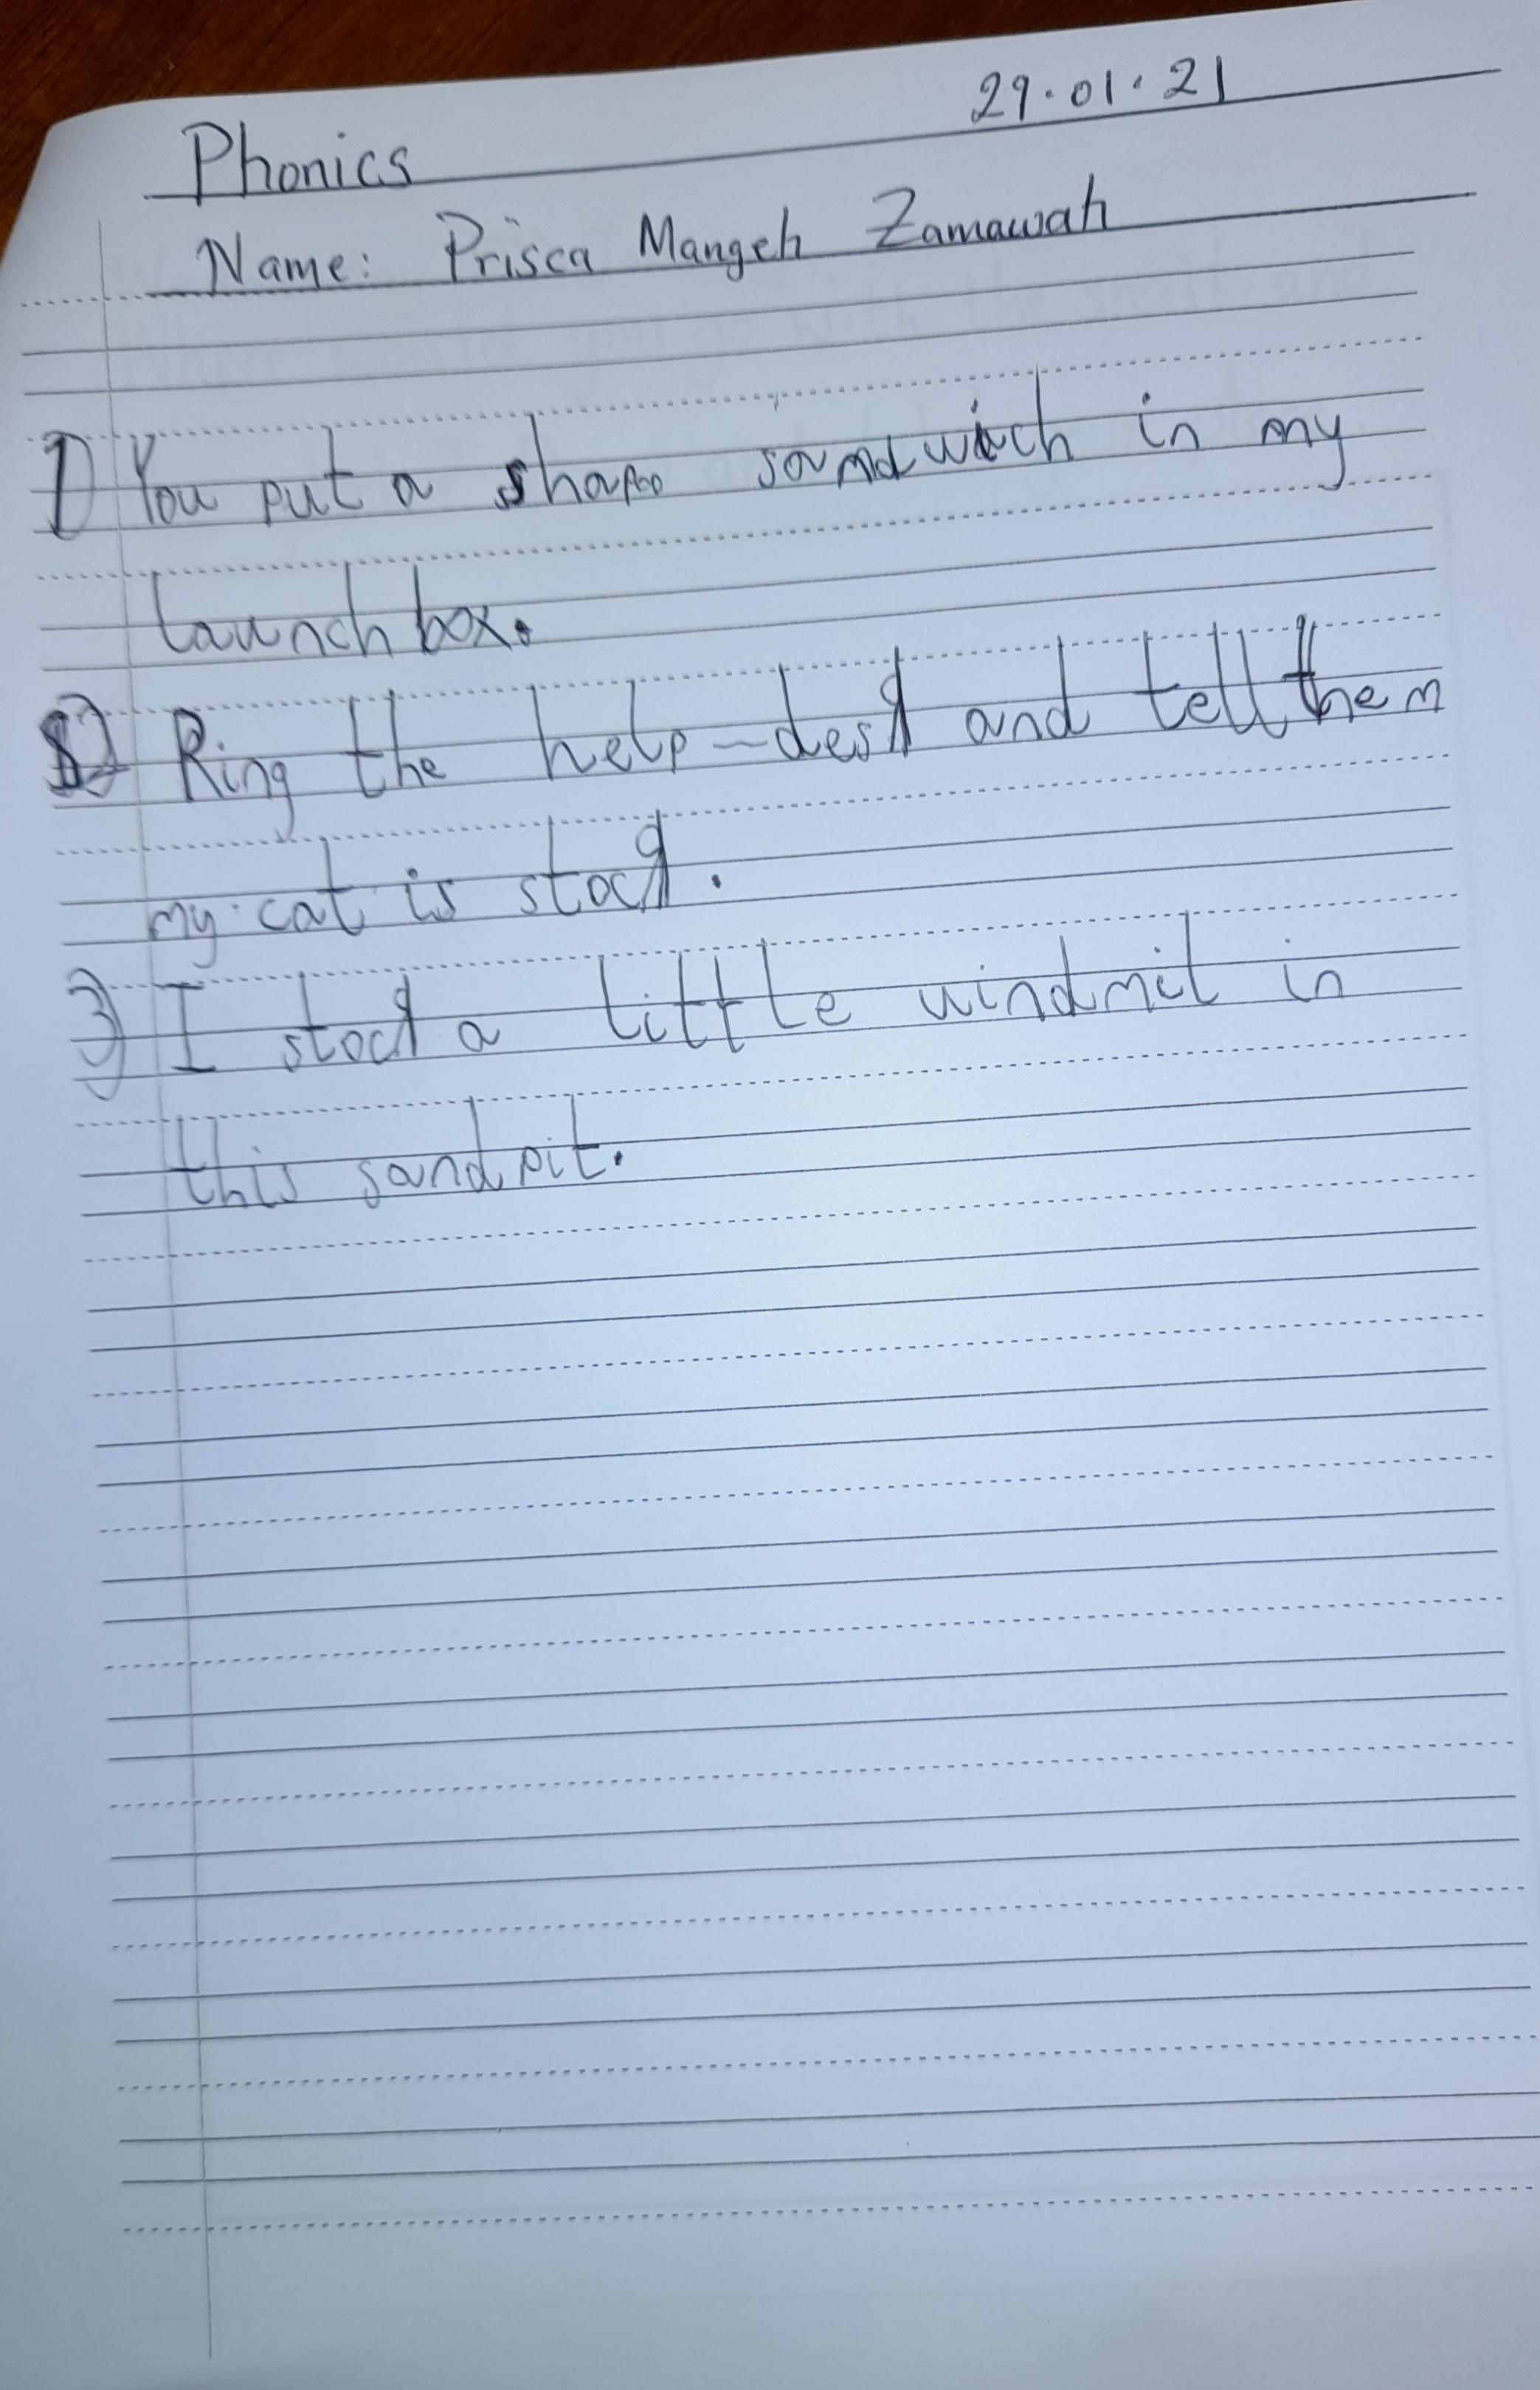 29.01.21
Phonics
Name: Prisca Mangeh Zamawah
1) You put a sandwich in my
launch box.
2) Ring the help-desk and tell them
my cat is stock.
3) I stock a little windmil in
this sandpit.